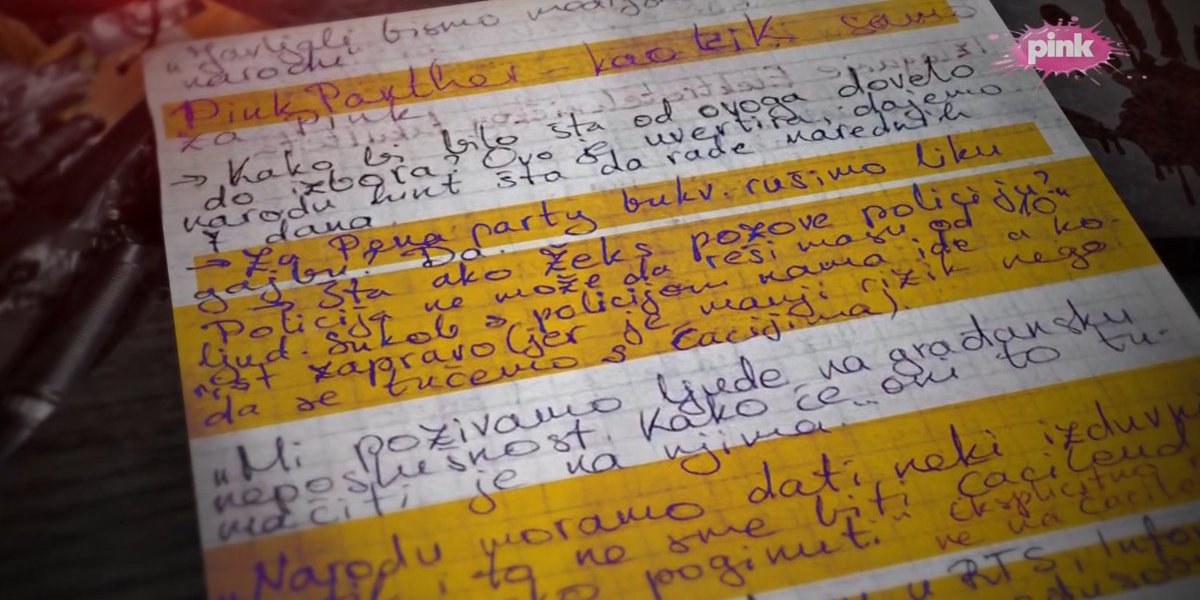 „Javljali bismo
narodu"
Pink Panther – kao lik samo
za pink
→ Kako bi bilo šta od ovoga dovelo
do izbora? Ovo je uvertira, dajemo
narodu hint šta da rade narednih
7 dana.
→ Za Pena party bukv. rušimo liku
gajbu. Da.
→ Šta ako žeks pozove policiju?
Policija ne može da reši masu od 10
ljud. Sukob s policijom nama ide u ko-
rist zapravo (jer je manji rizik nego
da se tučemo s ćacijima)
„Mi pozivamo ljude na građansku
neposlušnost. Kako će oni to tu-
mačiti je na njima.
Narodu moramo dati neki izduvn
i to ne sme biti Ćacilend
poginuti." eksplicitno
ne na Ćacile
u RTS, Infor
pink